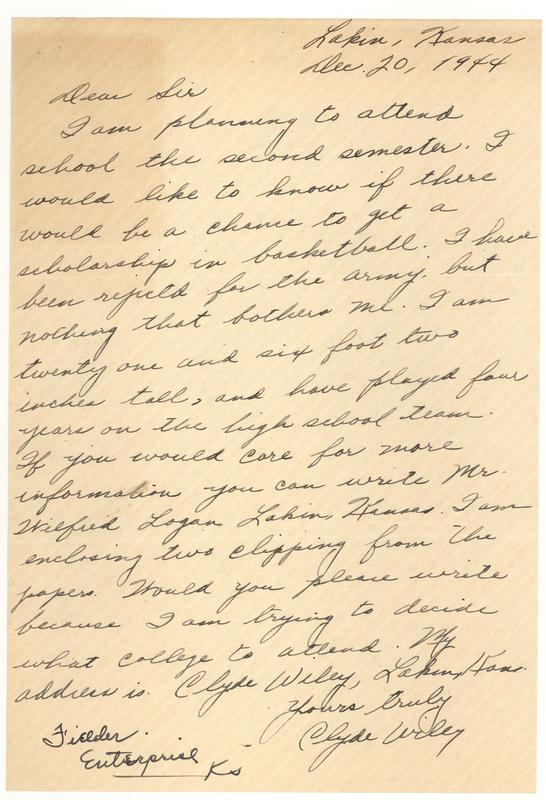 Lakin, Kansas
Dec. 20, 1944
Dear Sir
I am planning to attend
school the second semester. I
would like to know if there
would be a chance to get a
scholarship in basketball. I have
been rejectd for the army, but
nothing that bothers me. I am
twenty one and six foot two
inches tall, and have played four
years on the high school team.
If you would care for more
information you can write Mr.
Wilfred Logan Lakin, Kansas. I am
enclosing two clipping from the
papers. Would you please write
because I am trying to decide
what college to attend. My
address is. Clyde Wiley, Lakin, Kans.
Yours truly
Clyde Wiley
Fielder.
Enterprise
Ks